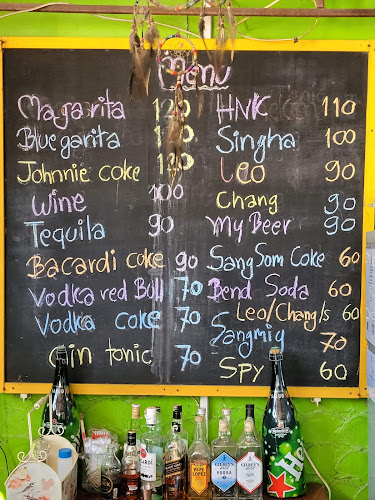 Menu
Magarita 120
Bluegarita 120
Johnnie coke 120
Wine 100
Tequila 90
Bacardi coke 90
Vodka red Bull 70
Vodka coke 70
Gin tonic 70
HNK 110
Singha 100
Leo 90
Chang 90
My Beer 90
SangSom Coke 60
Bend Soda 60
Leo/Chang/s 60
Sangmig 70
SPY 60